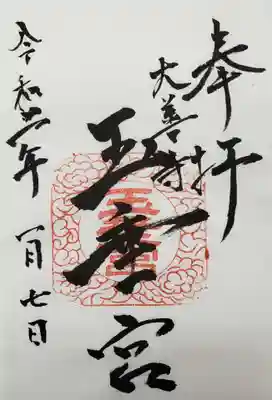 奉拝
大善寺
玉垂宮
玉垂宮
令和六年
一月七日